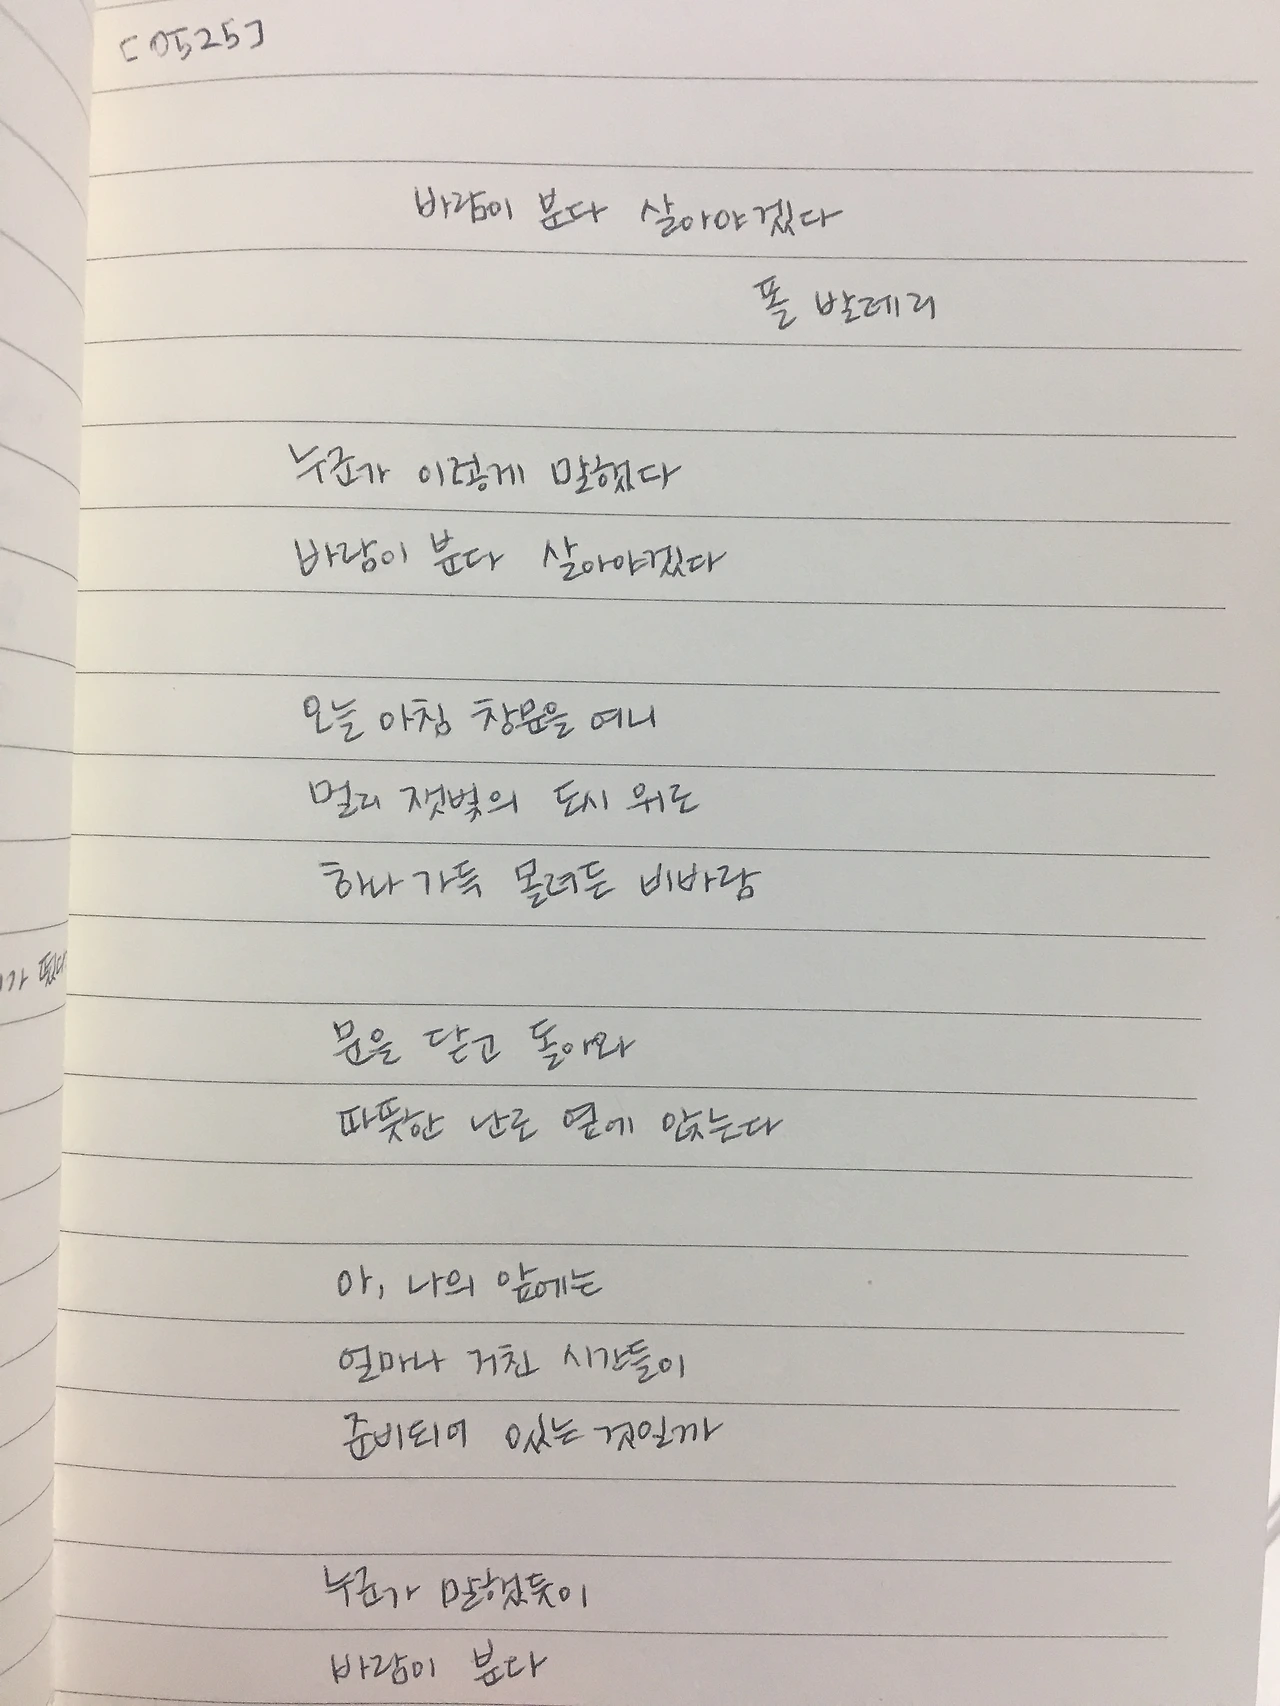 [0525]
바람이 분다 살아야겠다
폴 발레리
누군가 이렇게 말했다
바람이 분다 살아야겠다
오늘 아침 창문을 여니
멀리 잿빛의 도시 위로
하나 가득 몰려든 비바람
가 됐다
문을 닫고 돌아와
따뜻한 난로 옆에 앉는다
아, 나의 앞에는
얼마나 거친 시간들이
준비되어 있는 것일까
누군가 말했듯이
바람이 분다